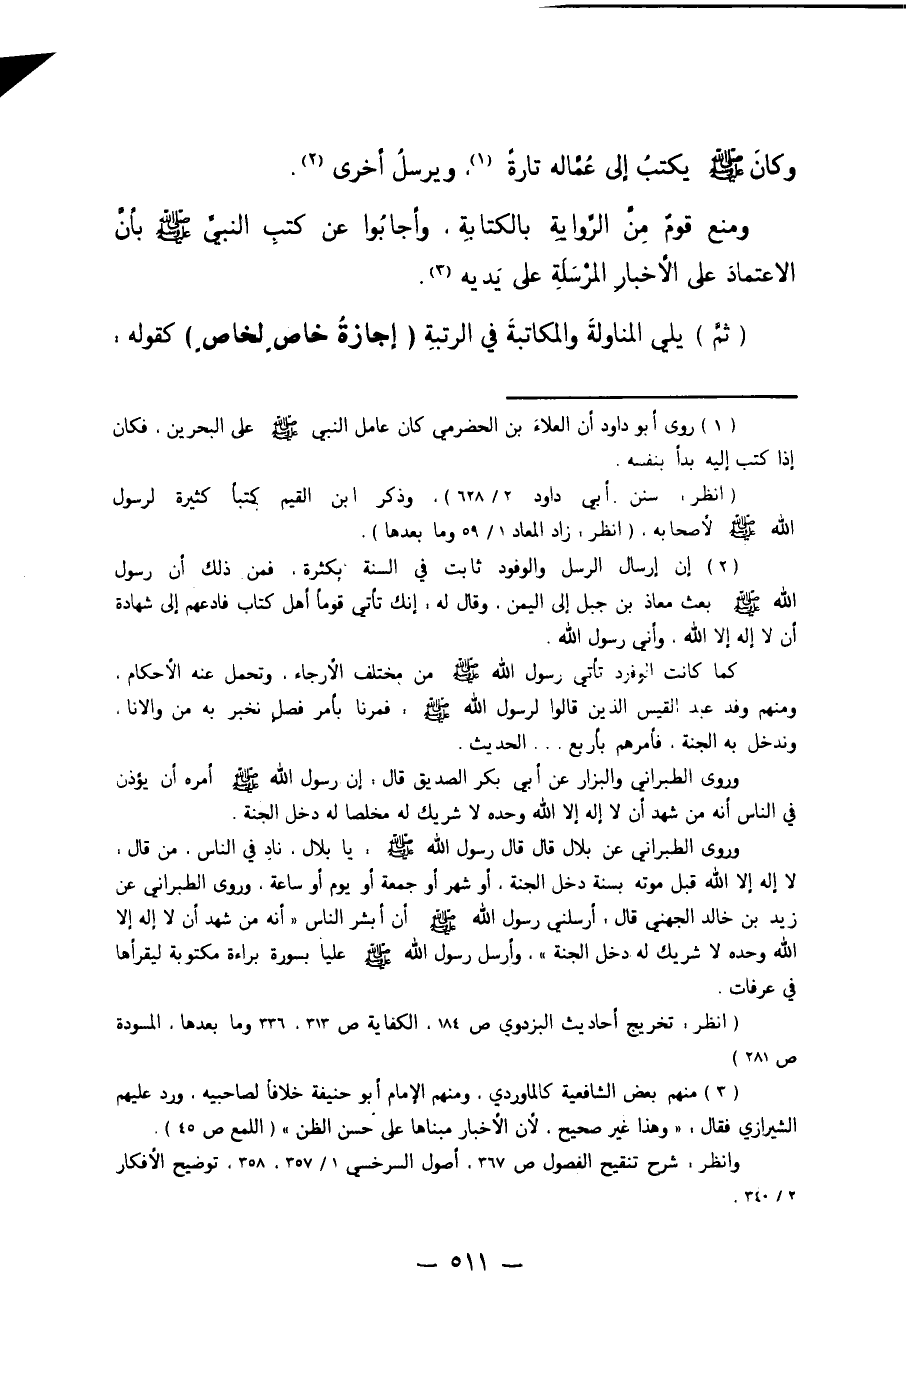 وكانَ ﷺ يكتبُ إلى عُمَّاله تارةً (١)، ويرسلُ أخرى (٢).
ومنع قومٌ مِنَّ الرَّوايةِ بالكتابةِ، وأجابُوا عن كتبِ النبيِّ ﷺ بأنَّ
الاعتمادَ على الأخبارِ المرْسَلَةِ على يَديه (٣).
( ثمَّ ) يلي المناولةَ والمكاتبةَ في الرتبةِ ( إجازةُ خاصٍ لخاصٍ ) كقوله :
( ١ ) روى أبو داود أن العلاءَ بن الحضرمي كان عامل النبي ﷺ على البحرين ، فكان
إذا كتب إليه بدأ بنفسه .
( انظر : سنن أبي داود ٢ / ٦٢٨ ) ، وذكر ابن القيم كتباً كثيرة لرسول
الله ﷺ لأصحابه ، ( انظر : زاد المعاد ١ / ٥٩ وما بعدها ) .
( ٢ ) إن إرسال الرسل والوفود ثابت في السنة بكثرة ، فمن ذلك أن رسول
الله ﷺ بعث معاذ بن جبل إلى اليمن ، وقال له : إنك تأتي قوماً أهل كتاب فادعهم إلى شهادة
أن لا إله إلا الله ، وأني رسول الله .
كما كانت الوفود تأتي رسول الله ﷺ من مختلف الأرجاء ، وتحمل عنه الأحكام ،
ومنهم وفد عبد القيس الذين قالوا لرسول الله ﷺ : فمرنا بأمر فصل نخبر به من والانا ،
وندخل به الجنة ، فأمرهم بأربع . . . الحديث .
وروى الطبراني والبزار عن أبي بكر الصديق قال : إن رسول الله ﷺ أمره أن يؤذن
في الناس أنه من شهد أن لا إله إلا الله وحده لا شريك له مخلصا له دخل الجنة .
وروى الطبراني عن بلال قال قال رسول الله ﷺ : يا بلال ، نادِ في الناس ، من قال :
لا إله إلا الله قبل موته بسنة دخل الجنة ، أو شهر أو جمعة أو يوم أو ساعة ، وروى الطبراني عن
زيد بن خالد الجهني قال : أرسلني رسول الله ﷺ أن أبشر الناس « أنه من شهد أن لا إله إلا
الله وحده لا شريك له دخل الجنة » ، وأرسل رسول الله ﷺ علياً بسورة براءة مكتوبة ليقرأها
في عرفات .
( انظر : تخريج أحاديث البزدوي ص ١٨٤ ، الكفاية ص ٣١٣ ، ٣٣٦ وما بعدها ، المسودة
ص ٢٨١ )
( ٣ ) منهم بعض الشافعية كالماوردي ، ومنهم الإمام أبو حنيفة خلافاً لصاحبيه ، ورد عليهم
الشيرازي فقال : « وهذا غير صحيح ، لأن الأخبار مبناها على حسن الظن » ( اللمع ص ٤٥ ) .
وانظر : شرح تنقيح الفصول ص ٣٦٧ ، أصول السرخسي ١ / ٣٥٧ ، ٣٥٨ ، توضيح الأفكار
٢ / ٣٤٠ .
— ٥١١ —